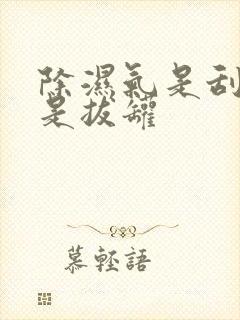 除濕氣是刮
是拔罐
慕輕語